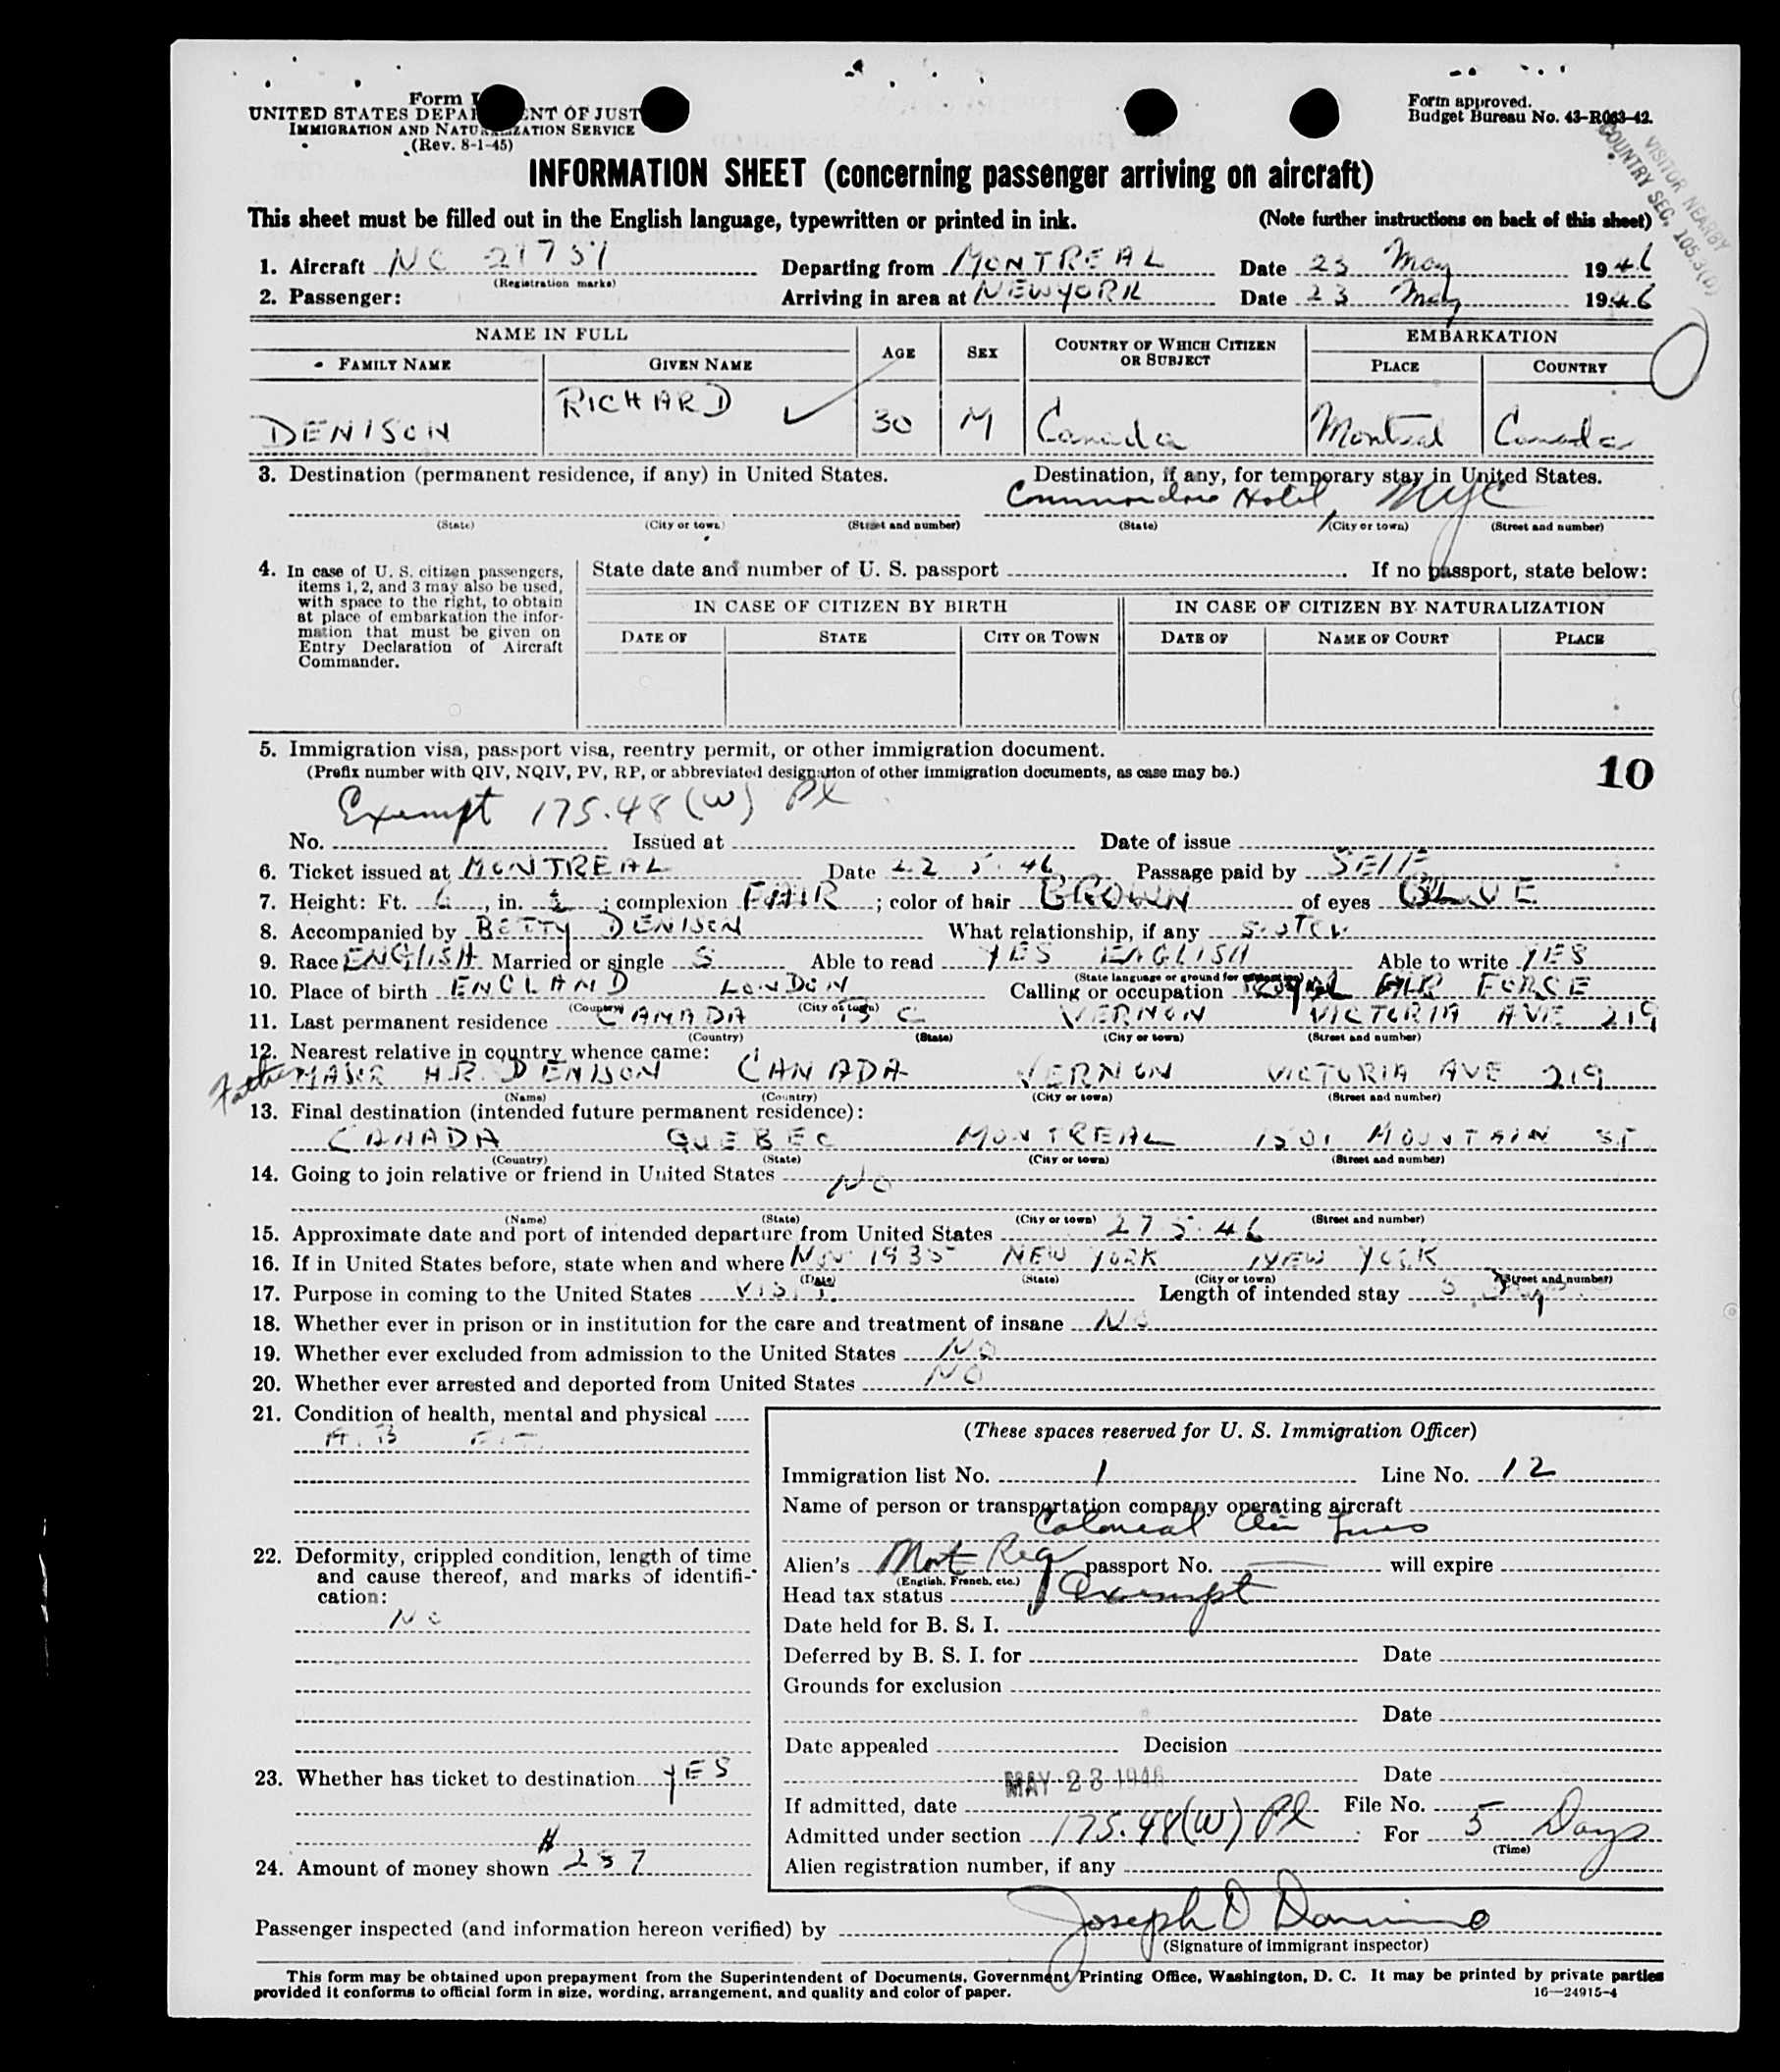 Form I
UNITED STATES DEPA ENT OF JUST
IMMIGRATION AND NATURALIZATION SERVICE
(Rev. 8-1-45)
Form approved.
Budget Bureau No. 43-R063-42.
VISITOR NEARBY
COUNTRY SEC. 105.3(b)
INFORMATION SHEET (concerning passenger arriving on aircraft)
This sheet must be filled out in the English language, typewritten or printed in ink. (Note further instructions on back of this sheet)
1. Aircraft NC 21751 Departing from MONTREAL Date 23 May 1946
(Registration marks)
2. Passenger: Arriving in area at NEW YORK Date 23 May 1946
NAME IN FULL AGE SEX COUNTRY OF WHICH CITIZEN OR SUBJECT EMBARKATION
FAMILY NAME GIVEN NAME PLACE COUNTRY
DENISON RICHARD 30 M Canada Montreal Canada
3. Destination (permanent residence, if any) in United States. Destination, if any, for temporary stay in United States.
Commodore Hotel, NYC
(State) (City or town) (Street and number) (State) (City or town) (Street and number)
4. In case of U. S. citizen passengers, items 1, 2, and 3 may also be used, with space to the right, to obtain at place of embarkation the information that must be given on Entry Declaration of Aircraft Commander.
State date and number of U. S. passport If no passport, state below:
IN CASE OF CITIZEN BY BIRTH IN CASE OF CITIZEN BY NATURALIZATION
DATE OF STATE CITY OR TOWN DATE OF NAME OF COURT PLACE
5. Immigration visa, passport visa, reentry permit, or other immigration document.
(Prefix number with QIV, NQIV, PV, RP, or abbreviated designation of other immigration documents, as case may be.)
10
Exempt 175.48 (W) Pl
No. Issued at Date of issue
6. Ticket issued at MONTREAL Date 22 5. 46 Passage paid by SELF
7. Height: Ft. 6, in. ; complexion FAIR; color of hair BROWN of eyes BLUE
8. Accompanied by BETTY DENISON What relationship, if any
9. Race ENGLISH Married or single S Able to read YES ENGLISH Able to write YES
(State language or ground for exemption)
10. Place of birth ENGLAND LONDON Calling or occupation ROYAL AIR FORCE
(Country) (City or town)
11. Last permanent residence CANADA BC VERNON VICTORIA AVE 219
(Country) (State) (City or town) (Street and number)
12. Nearest relative in country whence came:
Father MAJOR H.R. DENISON CANADA VERNON VICTORIA AVE 219
(Name) (Country) (City or town) (Street and number)
13. Final destination (intended future permanent residence):
CANADA QUEBEC MONTREAL 1501 MOUNTAIN ST.
(Country) (State) (City or town) (Street and number)
14. Going to join relative or friend in United States NO
(Name) (State) (City or town) (Street and number)
15. Approximate date and port of intended departure from United States 27 5. 46
16. If in United States before, state when and where NOV 1935 NEW YORK NEW YORK
(Date) (State) (City or town) (Street and number)
17. Purpose in coming to the United States VISIT. Length of intended stay 5 Days
18. Whether ever in prison or in institution for the care and treatment of insane NO
19. Whether ever excluded from admission to the United States NO
20. Whether ever arrested and deported from United States NO
21. Condition of health, mental and physical
22. Deformity, crippled condition, length of time and cause thereof, and marks of identification:
NO
23. Whether has ticket to destination YES
24. Amount of money shown $ 257
(These spaces reserved for U. S. Immigration Officer)
Immigration list No. 1 Line No. 12
Name of person or transportation company operating aircraft
Colonial Air Lines
Alien's Mont Reg passport No. will expire
(English, French, etc.)
Head tax status Exempt
Date held for B. S. I.
Deferred by B. S. I. for Date
Grounds for exclusion
Date
Date appealed Decision
MAY 23 1946 Date
If admitted, date File No.
Admitted under section 175.48(W) Pl For 5 Days
(Time)
Alien registration number, if any
Passenger inspected (and information hereon verified) by Joseph D
(Signature of immigrant inspector)
This form may be obtained upon prepayment from the Superintendent of Documents, Government Printing Office, Washington, D. C. It may be printed by private parties
provided it conforms to official form in size, wording, arrangement, and quality and color of paper. 16—24915-4